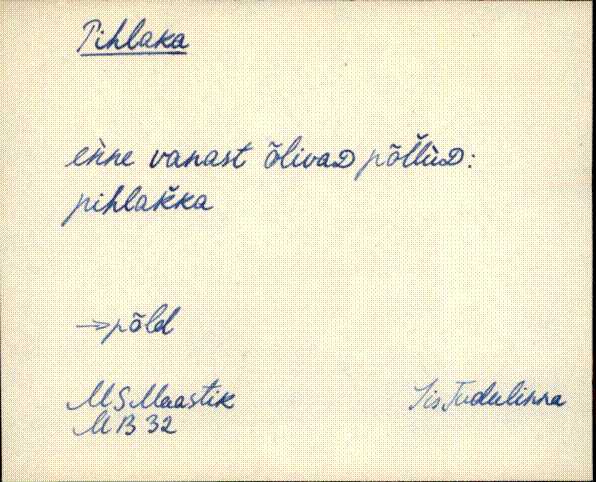 Pihlaka
enne vanast õlivaD põl̆lùD:
pihlak̆ka
→põld
M S Maastik
M B 32
Iis Tudulinna